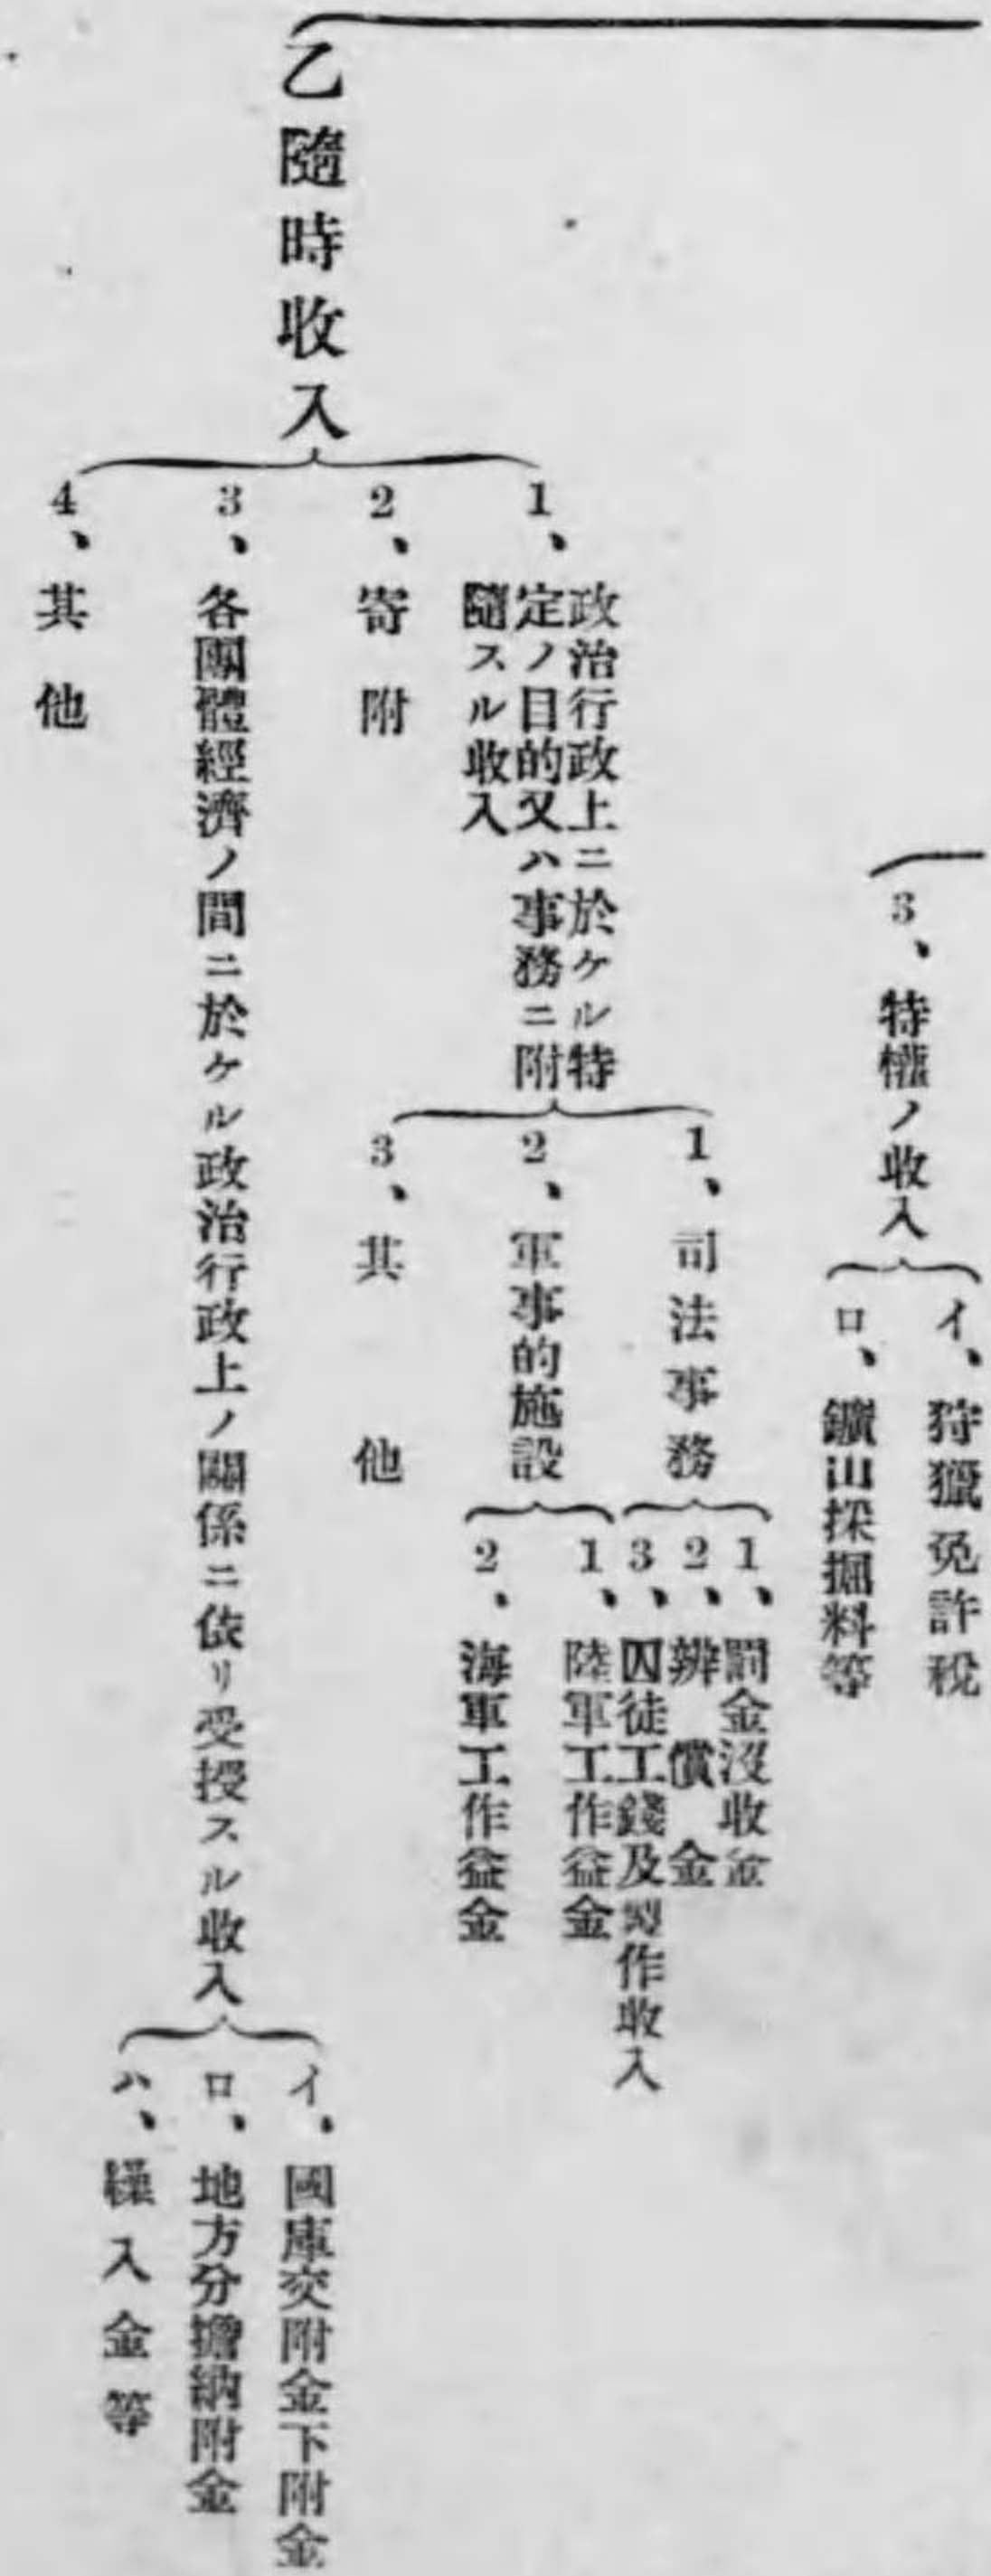 3、特權ノ收入
イ、狩獵免許稅
ロ、鑛山採掘料等
乙隨時收入
1、政治行政上ニ於ケル特
定ノ目的又ハ事務ニ附
隨スル收入
1、司法事務
1、罰金沒收金
2、辨償金
3、囚徒工錢及製作收入
2、軍事的施設
1、陸軍工作益金
2、海軍工作益金
3、其他
2、寄附
3、各團體經濟ノ間ニ於ケル政治行政上ノ關係ニ依リ受授スル收入
イ、國庫交附金下附金
ロ、地方分擔納附金
ハ、繰入金等
4、其他